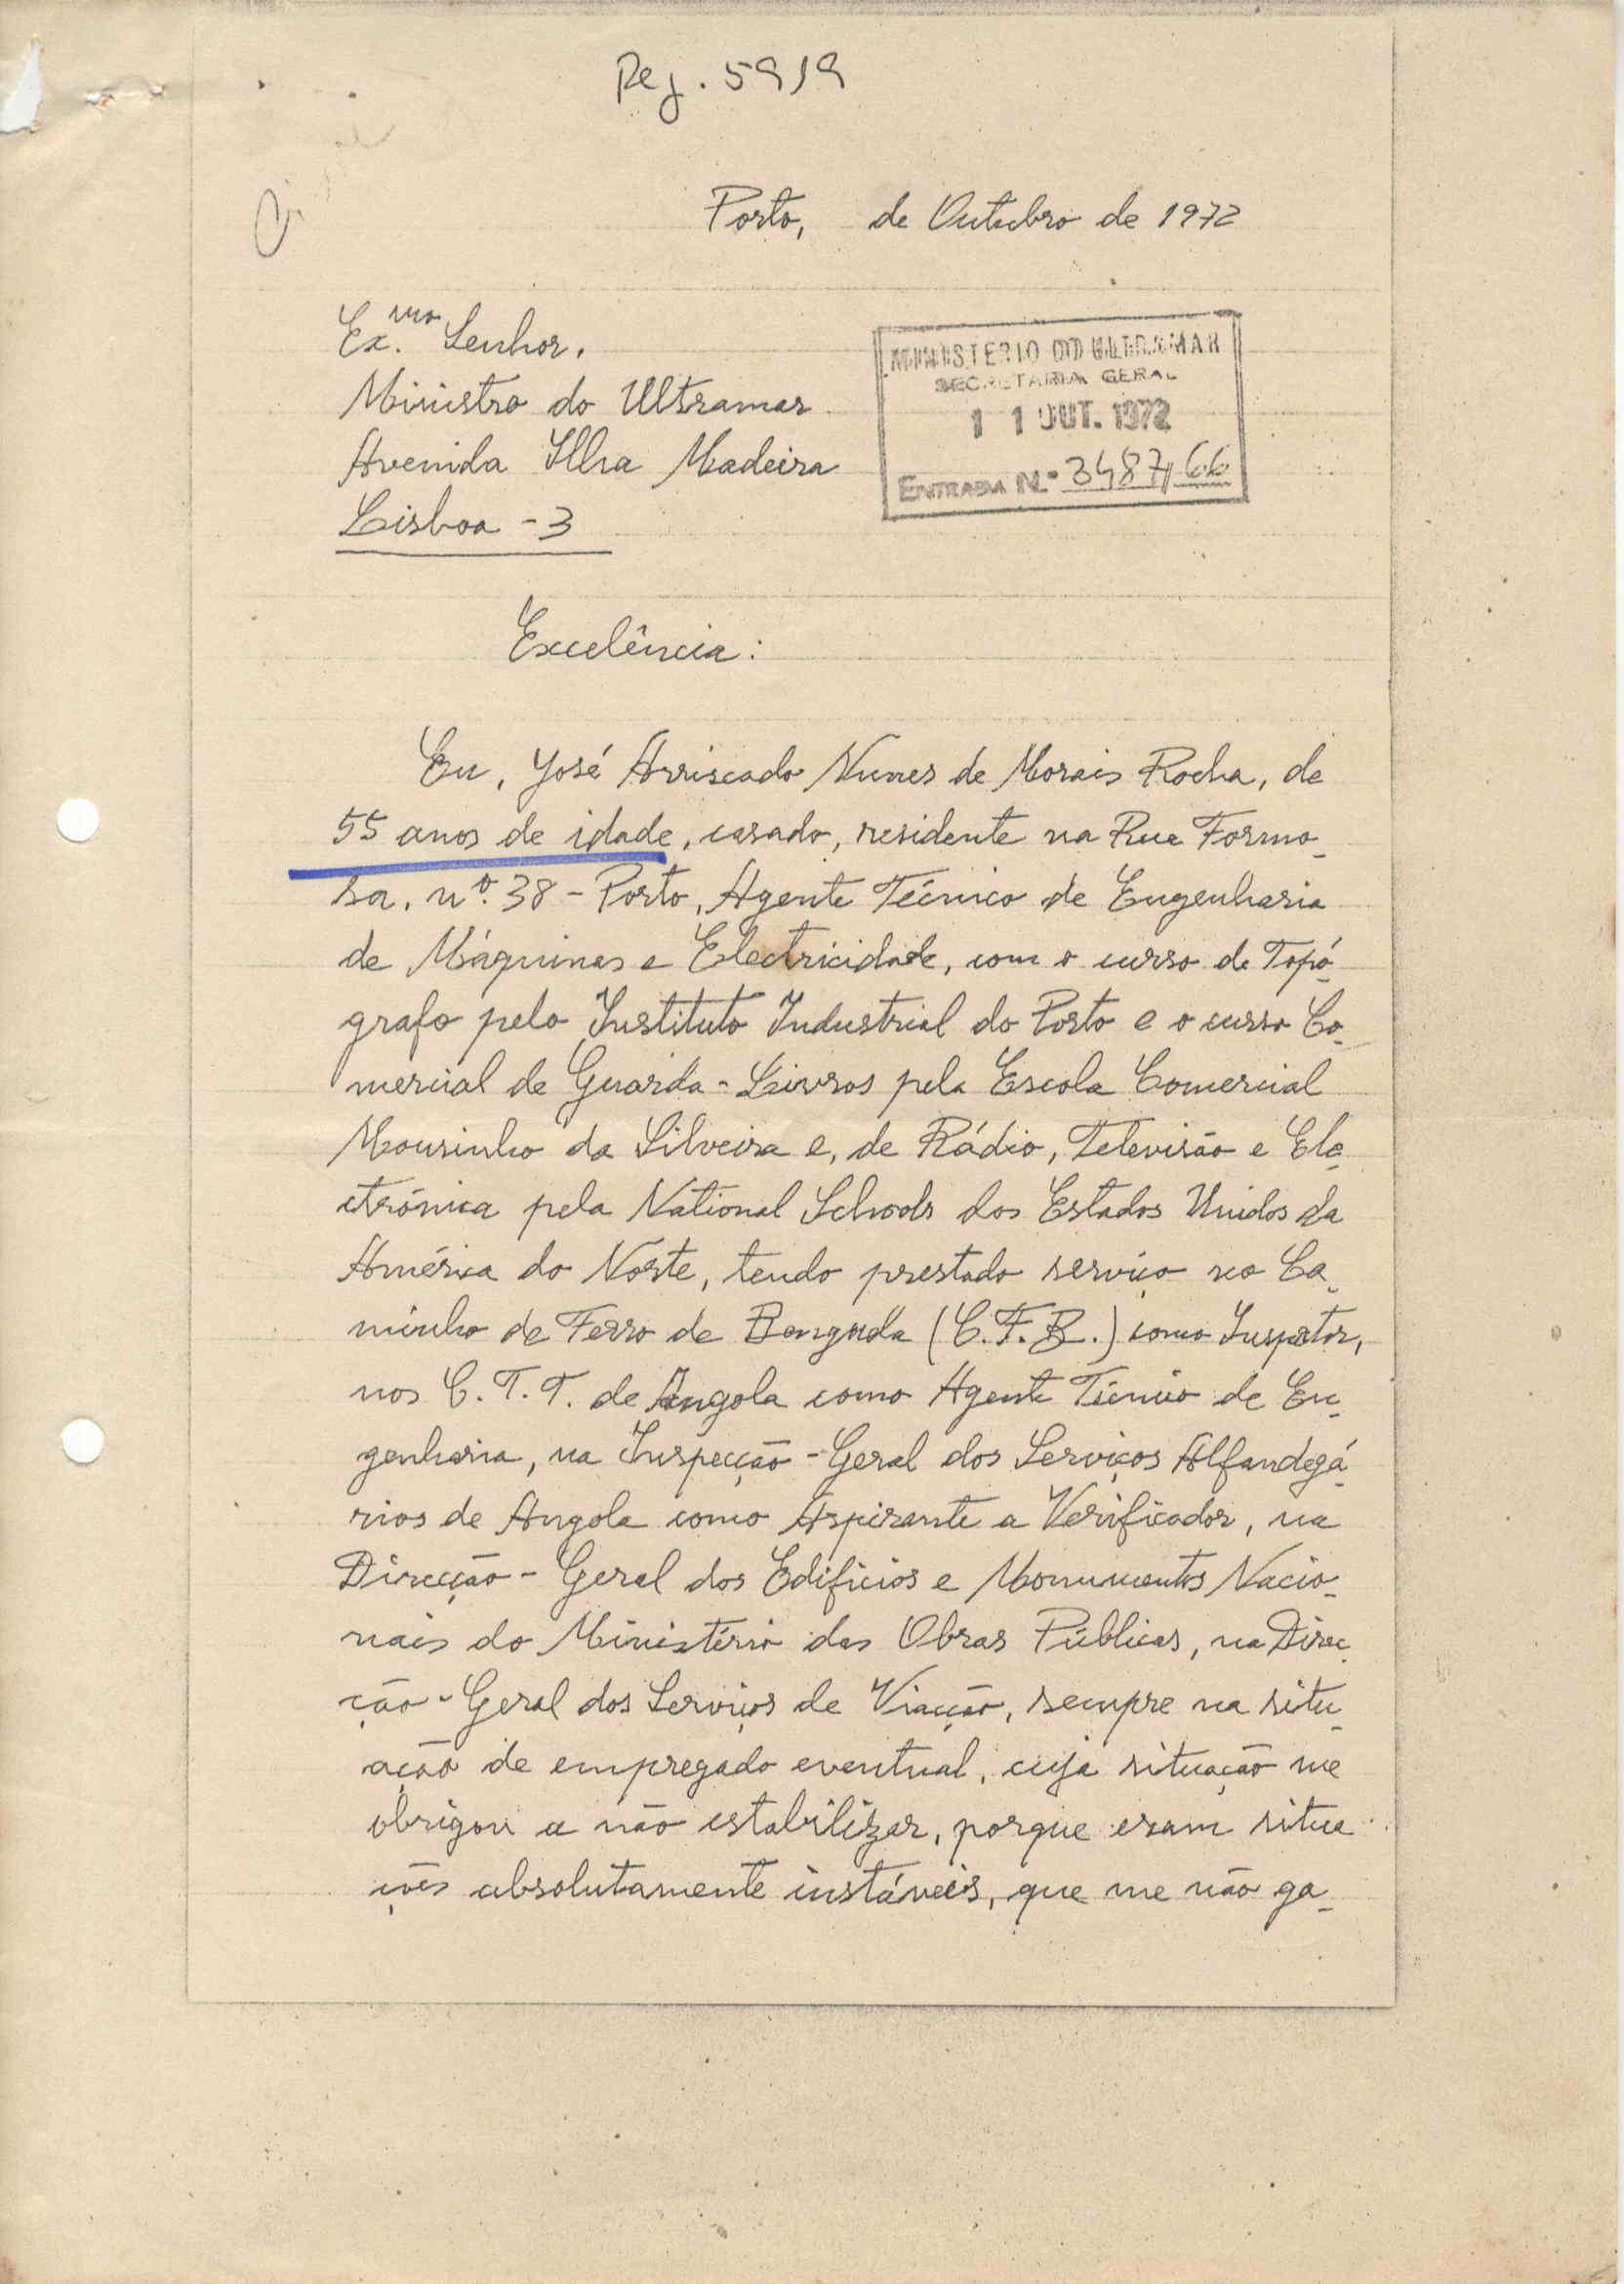 Reg. 5919
Porto, de Outubro de 1972
Ex.mo Senhor.
Ministro do Ultramar
Avenida Ilha Madeira
Lisboa - 3
MINISTERIO DO ULTRAMAR
SECRETARIA GERAL
11 OUT. 1972
ENTRADA N.º 3487/66
Excelência:
Eu, José Arriscado Nunes de Morais Rocha, de
55 anos de idade, casado, residente na Rua Formo-
sa, nº. 38 - Porto, Agente Técnico de Engenharia
de Máquinas e Electricidade, com o curso de Topó-
grafo pelo Instituto Industrial do Porto e o curso Co-
mercial de Guarda-Livros pela Escola Comercial
Mousinho da Silveira e, de Rádio, Televisão e Ele-
ctrónica pela National Schools dos Estados Unidos da
América do Norte, tendo prestado serviço no Ca-
minho de Ferro de Benguela (C.F.B.) como Inspector,
nos C.T.T. de Angola como Agente Técnico de En-
genharia, na Inspecção-Geral dos Serviços Alfandegá-
rios de Angola como Aspirante a Verificador, na
Direcção-Geral dos Edifícios e Monumentos Nacio-
nais do Ministério das Obras Públicas, na Direc-
ção-Geral dos Serviços de Viação, sempre na situ-
ação de empregado eventual, cuja situação me
obrigou a não estabilizar, porque eram situa-
ções absolutamente instáveis, que me não ga-